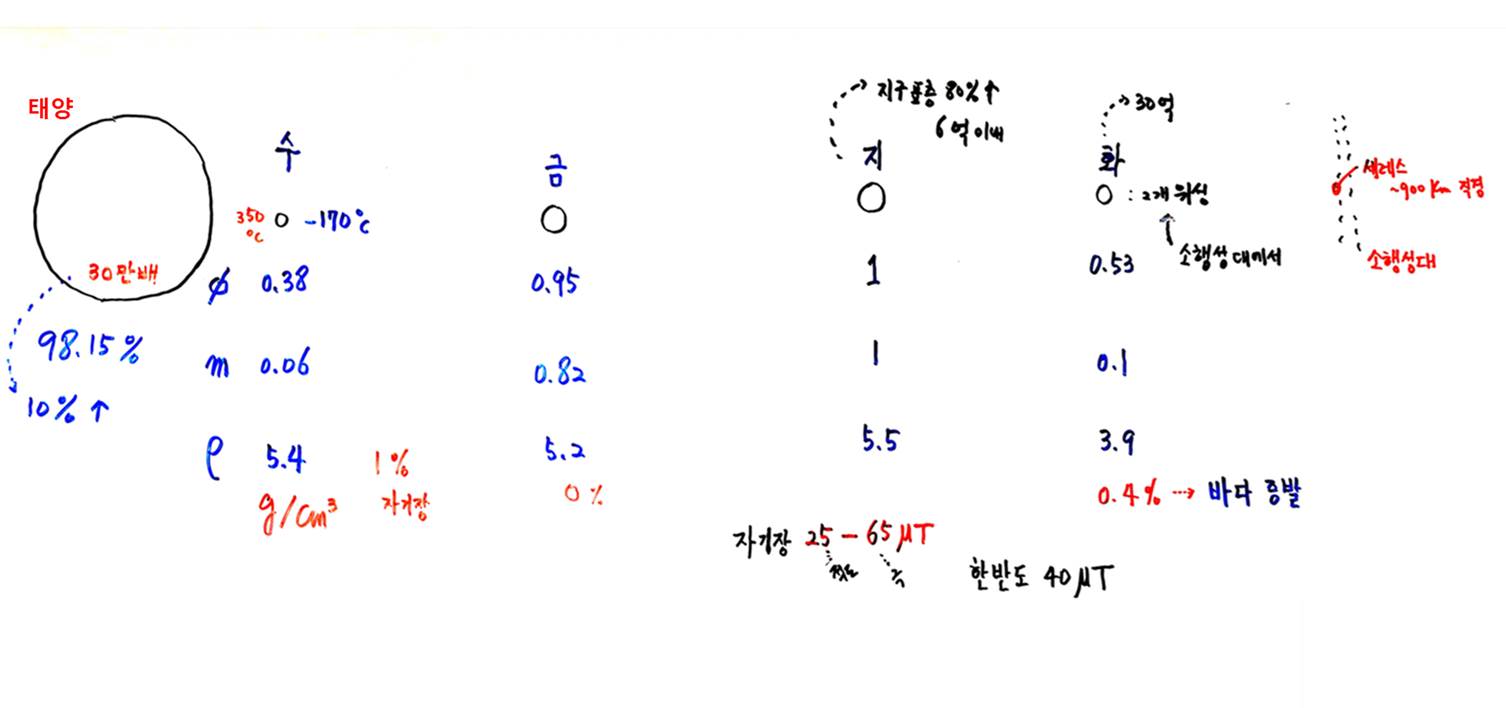 태양
30만배
98.15%
10% ↑
수
350
°C
-170°C
금
지구표층 80%↑
6억이내
지
30억
화
: 2개 위성
소행성대에서
세레스
~900km 직경
소행성대
ø 0.38 0.95 1 0.53
m 0.06 0.82 1 0.1
ρ 5.4 5.2 5.5 3.9
g/cm³
1%
자기장
0%
0.4% → 바다 증발
자기장 25 - 65 μT
적도
극
한반도 40 μT